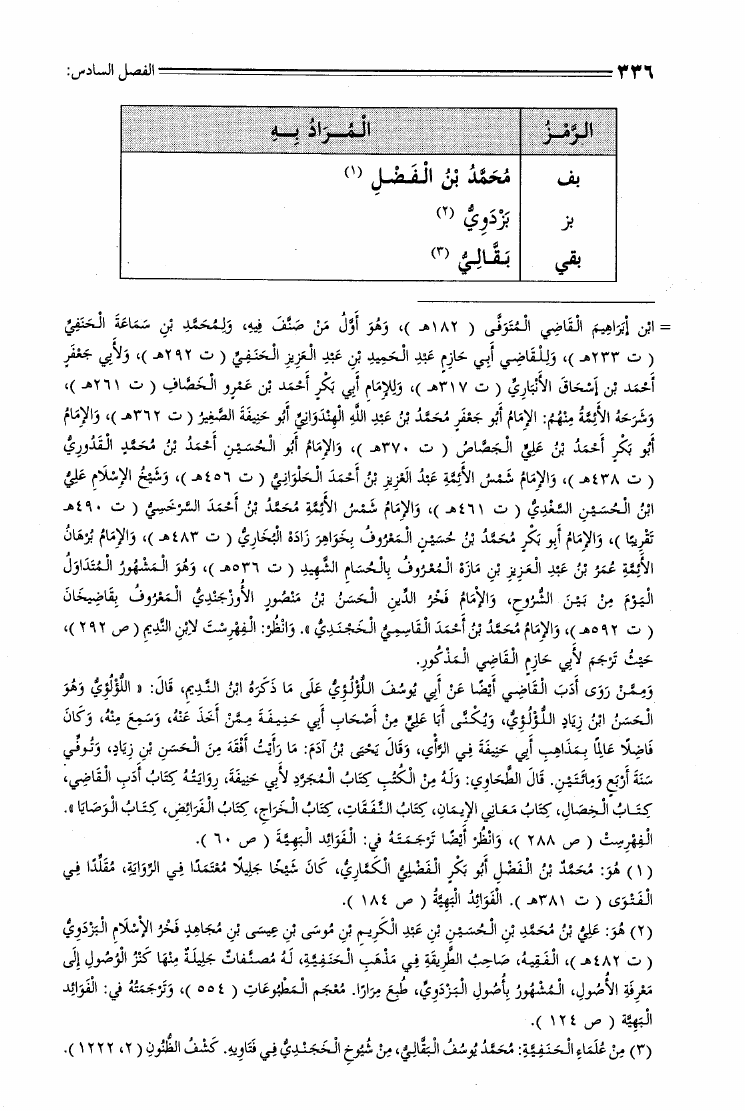 ٣٣٦ الفصل السادس:
الرَّمْزُ الْمُرَادُ بِهِ
بف مُحَمَّدُ بْنُ الْفَضْلِ (١)
بز بَزْدَوِيٌّ (٢)
بقي بَقَّالِيُّ (٣)
= ابْنِ إِبْرَاهِيمَ الْقَاضِي الْمُتَوَفَّى ( ١٨٢هـ )، وَهُوَ أَوَّلُ مَنْ صَنَّفَ فِيهِ، وَلِمُحَمَّدِ بْنِ سَمَاعَةَ الْحَنَفِيِّ
( ت ٢٣٣هـ )، وَلِلْقَاضِي أَبِي حَازِمٍ عَبْدِ الْحَمِيدِ بْنِ عَبْدِ الْعَزِيزِ الْحَنَفِيِّ ( ت ٢٩٢هـ )، وَلِأَبِي جَعْفَرٍ
أَحْمَدَ بْنِ إِسْحَاقَ الأَنْبَارِيِّ ( ت ٣١٧هـ )، وَلِلإِمَامِ أَبِي بَكْرٍ أَحْمَدَ بْنِ عَمْرٍو الْخَصَّافِ ( ت ٢٦١هـ )،
وَشَرَحَهُ الأَئِمَّةُ مِنْهُمُ: الإِمَامُ أَبُو جَعْفَرٍ مُحَمَّدُ بْنُ عَبْدِ اللَّهِ الْهِنْدَوَانِيُّ أَبُو حَنِيفَةَ الصَّغِيرُ ( ت ٣٦٢هـ )، وَالإِمَامُ
أَبُو بَكْرٍ أَحْمَدُ بْنُ عَلِيٍّ الْجَصَّاصُ ( ت ٣٧٠هـ )، وَالإِمَامُ أَبُو الْحُسَيْنِ أَحْمَدُ بْنُ مُحَمَّدٍ الْقَدُورِيُّ
( ت ٤٣٨هـ )، وَالإِمَامُ شَمْسُ الأَئِمَّةِ عَبْدُ الْعَزِيزِ بْنُ أَحْمَدَ الْحَلْوَانِيُّ ( ت ٤٥٦هـ )، وَشَيْخُ الإِسْلَامِ عَلِيُّ
ابْنُ الْحُسَيْنِ السُّغْدِيُّ ( ت ٤٦١هـ )، وَالإِمَامُ شَمْسُ الأَئِمَّةِ مُحَمَّدُ بْنُ أَحْمَدَ السَّرْخَسِيُّ ( ت ٤٩٠هـ
تَقْرِيبًا )، وَالإِمَامُ أَبُو بَكْرٍ مُحَمَّدُ بْنُ حُسَيْنٍ الْمَعْرُوفُ بِخَوَاهِرَ زَادَهْ الْبُخَارِيُّ ( ت ٤٨٣هـ )، وَالإِمَامُ بُرْهَانُ
الأَئِمَّةِ عُمَرُ بْنُ عَبْدِ الْعَزِيزِ بْنِ مَازَهْ الْمَعْرُوفُ بِالْحُسَامِ الشَّهِيدِ ( ت ٥٣٦هـ )، وَهُوَ الْمَشْهُورُ الْمُتَدَاوَلُ
الْيَوْمَ مِنْ بَيْنِ الشُّرُوحِ، وَالإِمَامُ فَخْرُ الدِّينِ الْحَسَنُ بْنُ مَنْصُورٍ الأُوزْجَنْدِيُّ الْمَعْرُوفُ بِقَاضِيخَانْ
( ت ٥٩٢هـ )، وَالإِمَامُ مُحَمَّدُ بْنُ أَحْمَدَ الْقَاسِمِيُّ الْخَجَنْدِيُّ ». وَانْظُرْ: الْفِهْرِسْتَ لِابْنِ النَّدِيمِ ( ص ٢٩٢ )،
حَيْثُ تَرْجَمَ لِأَبِي حَازِمٍ الْقَاضِي الْمَذْكُورِ.
وَمِمَّنْ رَوَى أَدَبَ الْقَاضِي أَيْضًا عَنْ أَبِي يُوسُفَ اللُّؤْلُؤِيُّ عَلَى مَا ذَكَرَهُ ابْنُ النَّدِيمِ، قَالَ: « اللُّؤْلُؤِيُّ وَهُوَ
الْحَسَنُ ابْنُ زِيَادٍ اللُّؤْلُؤِيُّ، وَيُكْنَى أَبَا عَلِيٍّ مِنْ أَصْحَابِ أَبِي حَنِيفَةَ مِمَّنْ أَخَذَ عَنْهُ، وَسَمِعَ مِنْهُ، وَكَانَ
فَاضِلًا عَالِمًا بِمَذَاهِبِ أَبِي حَنِيفَةَ فِي الرَّأْيِ، وَقَالَ يَحْيَى بْنُ آدَمَ: مَا رَأَيْتُ أَفْقَهَ مِنَ الْحَسَنِ بْنِ زِيَادٍ، وَتُوفِّيَ
سَنَةَ أَرْبَعٍ وَمِائَتَيْنِ. قَالَ الطَّحَاوِي: وَلَهُ مِنَ الْكُتُبِ كِتَابُ الْمُجَرَّدِ لِأَبِي حَنِيفَةَ، رِوَايَتُهُ كِتَابُ أَدَبِ الْقَاضِي،
كِتَابُ الْخِصَالِ، كِتَابُ مَعَانِي الإِيمَانِ، كِتَابُ النَّفَقَاتِ، كِتَابُ الْخَرَاجِ، كِتَابُ الْفَرَائِضِ، كِتَابُ الْوَصَايَا ».
الْفِهْرِسْتُ ( ص ٢٨٨ )، وَانْظُرْ أَيْضًا تَرْجَمَتَهُ فِي: الْفَوَائِد الْبَهِيَّةَ ( ص ٦٠ ).
(١) هُوَ: مُحَمَّدُ بْنُ الْفَضْلِ أَبُو بَكْرٍ الْفَضْلِيُّ الْكَمَارِيُّ، كَانَ شَيْخًا جَلِيلًا مُعْتَمَدًا فِي الرِّوَايَةِ، مُقَلَّدًا فِي
الْفَتْوَى ( ت ٣٨١هـ ). الْفَوَائِدُ الْبَهِيَّةُ ( ص ١٨٤ ).
(٢) هُوَ: عَلِيُّ بْنُ مُحَمَّدِ بْنِ الْحُسَيْنِ بْنِ عَبْدِ الْكَرِيمِ بْنِ مُوسَى بْنِ عِيسَى بْنِ مُجَاهِدٍ فَخْرُ الإِسْلَامِ الْبَزْدَوِيُّ
( ت ٤٨٢هـ )، الْفَقِيهُ، صَاحِبُ الطَّرِيقَةِ فِي مَذْهَبِ الْحَنَفِيَّةِ، لَهُ مُصَنَّفَاتٌ جَلِيلَةٌ مِنْهَا كَنْزُ الْوُصُولِ إِلَى
مَعْرِفَةِ الأُصُولِ، الْمَشْهُورُ بِأُصُولِ الْبَزْدَوِيِّ، طُبِعَ مِرَارًا. مُعْجَم الْمَطْبُوعَاتِ ( ٥٥٤ )، وَتَرْجَمَتُهُ فِي: الْفَوَائِد
الْبَهِيَّة ( ص ١٢٤ ).
(٣) مِنْ عُلَمَاءِ الْحَنَفِيَّةِ: مُحَمَّدُ يُوسُفُ الْبَقَّالِيُّ، مِنْ شُيُوخِ الْخَجَنْدِيِّ فِي فَتَاوِيهِ. كَشْفُ الظُّنُونِ ( ٢، ١٢٢٢ ).